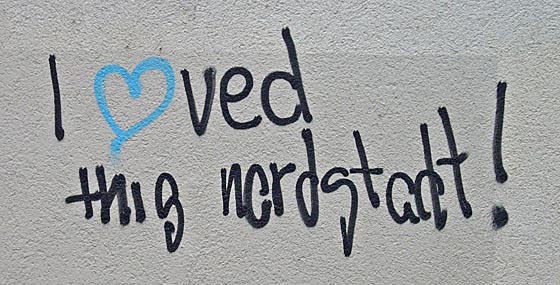 I ♥ved
this nordstadt!